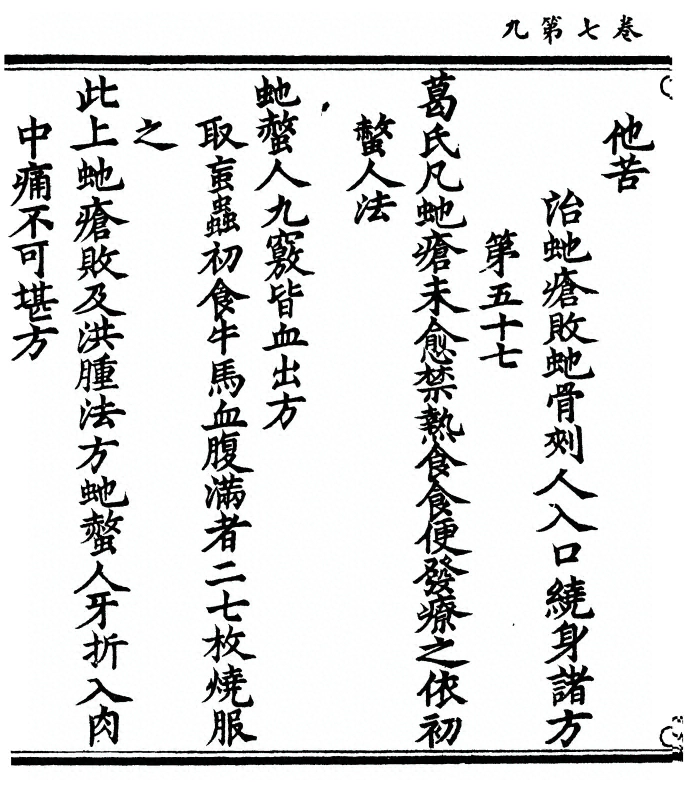 卷七第九
他苦
治虵瘡敗虵骨刾人入口繞身諸方
第五十七
葛氏凡虵瘡未愈禁熱食食便發療之依初
螫人法
虵螫人九竅皆血出方
取䖟蟲初食牛馬血腹滿者二七枚燒服
之
此上虵瘡敗及洪腫法方虵螫人牙折入肉
中痛不可堪方